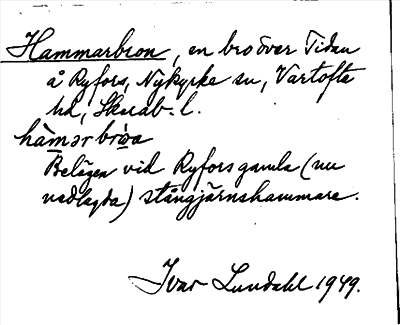 Hammarbron, en bro över Tidan
å Ryfors, Nykyrke sn, Vartofta
hd, Skarab. l.
hàmərbròa
Belägen vid Ryfors gamla (nu
nedlagda) stångjärnshammare.
Ivar Lundahl 1949.